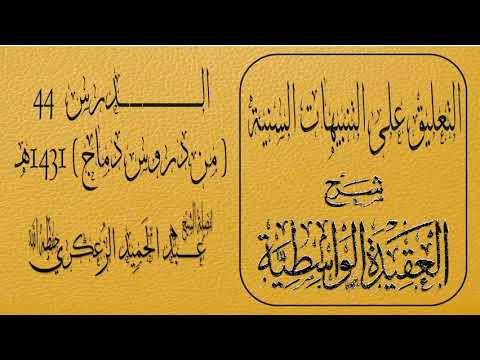 التعليق على التنبيهات السنية
شرح
العقيدة الواسطية
الـدرس 44
(من دروس دماج) 1431هـ
لفضيلة الشيخ
عبد الحميد الزعكري حفظه الله